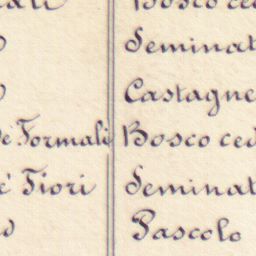 Bosco ced
Seminat
Castagne
de Formali Bosco ced
e' Fiori Seminat
Pascolo